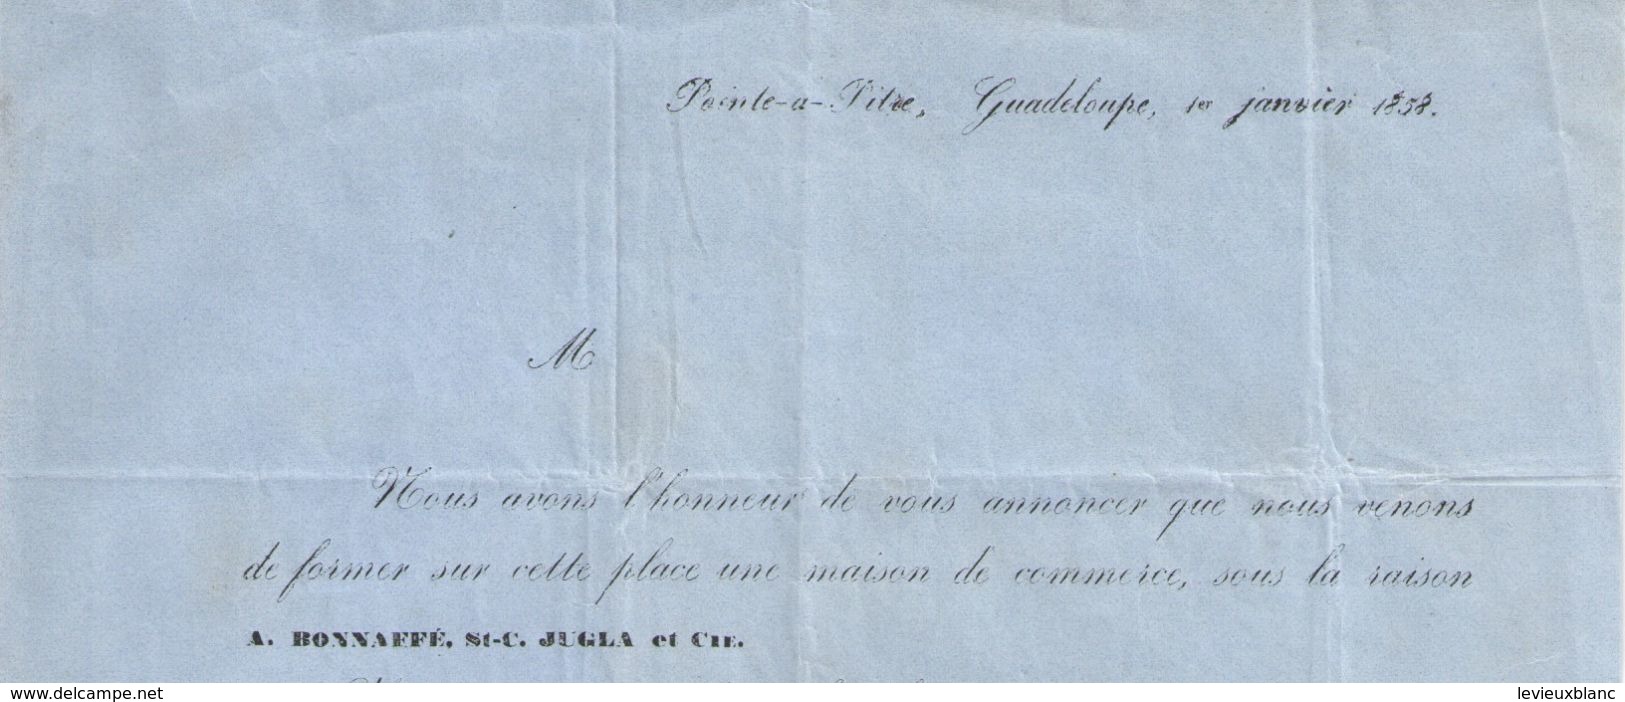 Pointe-a-Pitre, Guadeloupe, 1er janvier 1858.
M
Nous avons l'honneur de vous annoncer que nous venons
de former sur cette place une maison de commerce, sous la raison
A. BONNAFFÉ, St-C. JUGLA et CIE.
www.delcampe.net
levieuxblanc